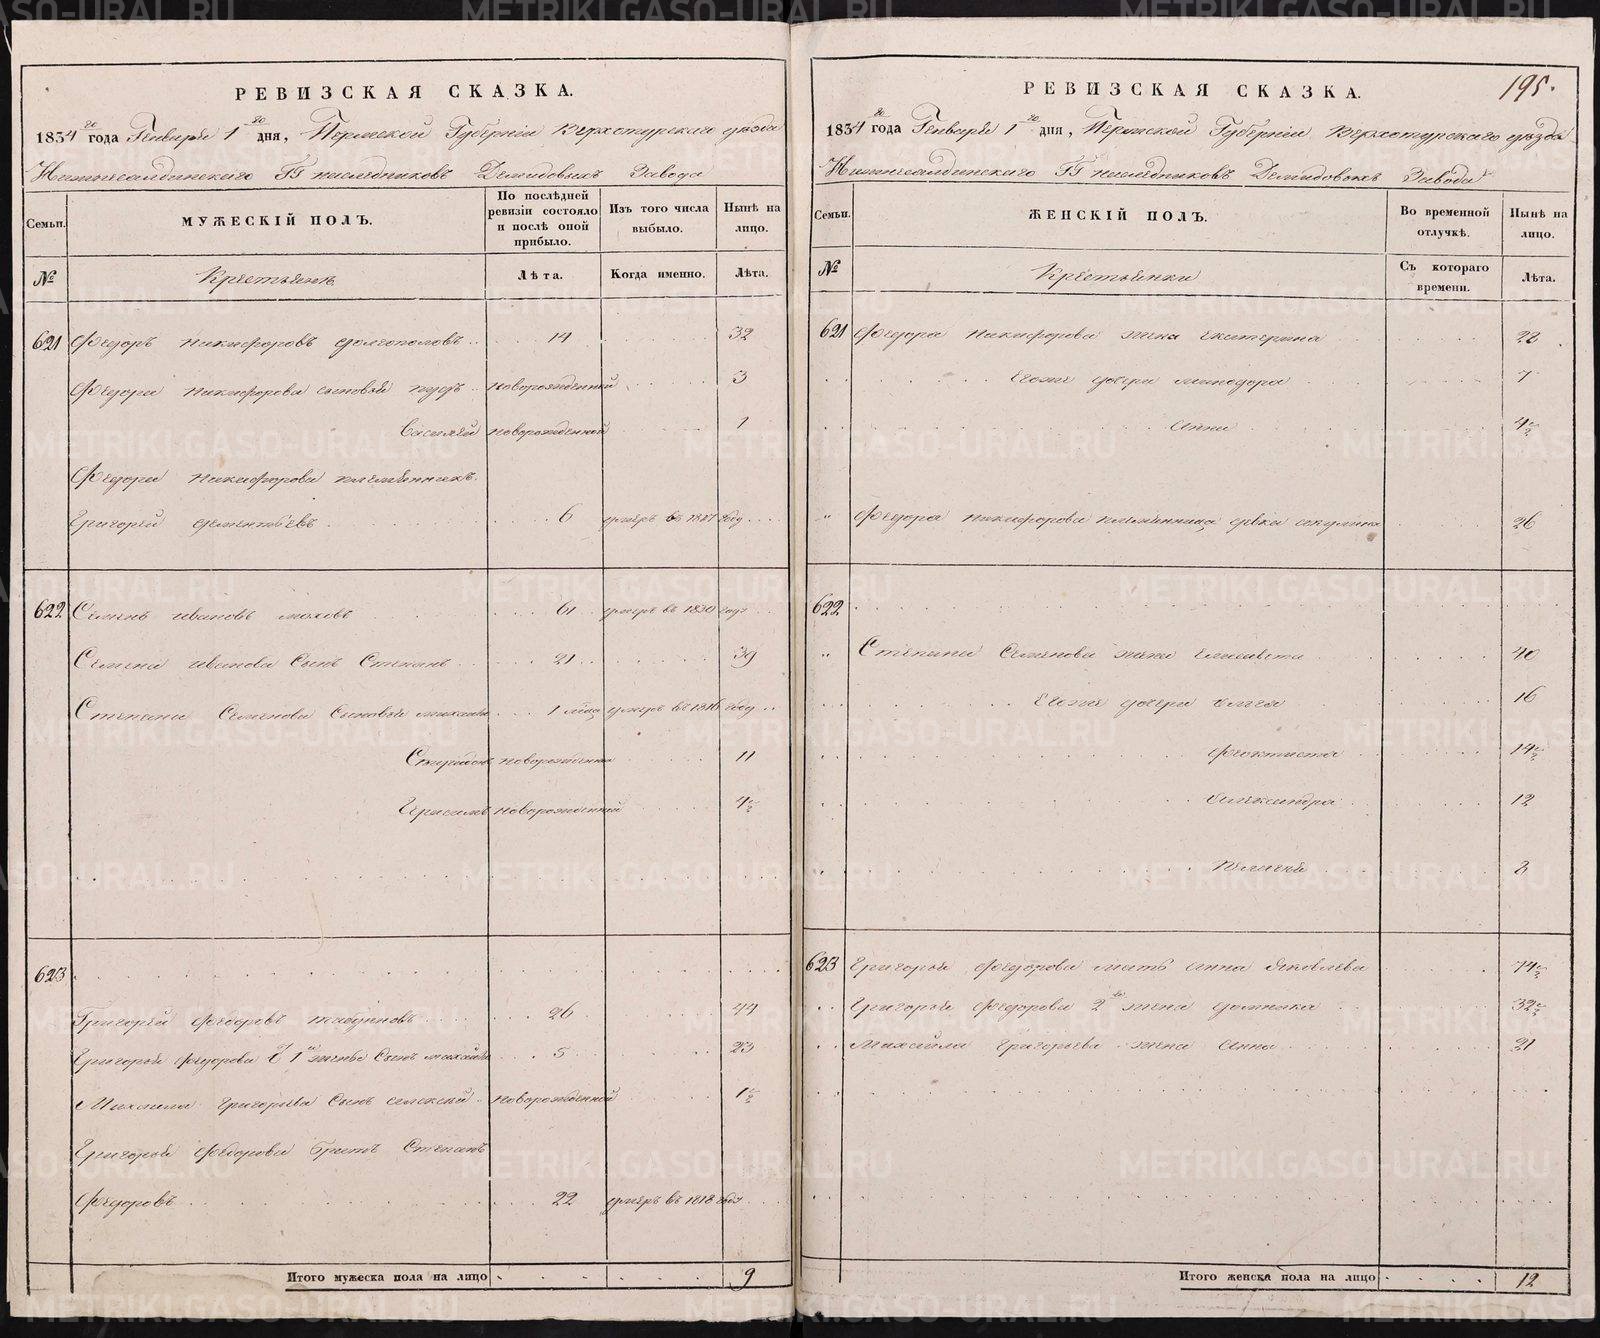 РЕВИЗСКАЯ СКАЗКА.
1834 го года Генваря 1 го дня, Пермской Губернии Верхотурскаго уѣзда
Нижнесалдинскаго ГГ наслѣдниковъ Демидовыхъ Завода
Семьи.
МУЖЕСКІЙ ПОЛЪ.
По послѣдней ревизіи состояло и послѣ оной прибыло.
Изъ того числа выбыло.
Нынѣ на лицо.
№
Крестьянъ
Лѣта.
Когда именно.
Лѣта.
621 Федоръ Никифоровъ Долгополовъ 14 32
Федора Никифорова сыновья новорожденный 3
Василей новорожденной 1
Федора Никифорова племянникъ
Григорей Дементьевъ 6 умеръ въ году
622 Семенъ Ивановъ 61 умеръ въ 1830 году
Семена Иванова сынъ Степанъ 21 39
Степана Семенова сыновья Михайло 1 умеръ въ 1816 году
Спиридонъ новорожденной 11
Герасимъ новорожденной 4½
623
Григорей Федоровъ 26 44
Григорья Федорова съ 1й жены сынъ Михайло 5 23
Михаила Григорьева сынъ Алексей новорожденной 1½
Григорья Федорова братъ Степанъ
Федоровъ 22 умеръ въ 1818 году
Итого мужеска пола на лицо 9
195.
РЕВИЗСКАЯ СКАЗКА.
1834 го года Генваря 1 го дня, Пермской Губернии Верхотурскаго уѣзда
Нижнесалдинскаго ГГ наслѣдниковъ Демидовыхъ Завода
Семьи.
ЖЕНСКІЙ ПОЛЪ.
Во временной отлучкѣ.
Нынѣ на лицо.
№
Крестьянки
Съ котораго времени.
Лѣта.
621 Федора Никифорова жена Екатерина 28
Егоже дочери Минодора 7
Анна 4½
" Федора Никифорова племянница девка Акулина 26
622
" Степана Семенова жена Елисавета 40
Егоже дочери 16
Феоктиста 14½
Александра 12
Пелагея 2
623 Григорья Федорова мать Анна Яковлева 74½
Григорья Федорова 2 жена Домника 32½
Михаила Григорьева жена Анна 21
Итого женска пола на лицо 12
METRIKI.GASO-URAL.RU